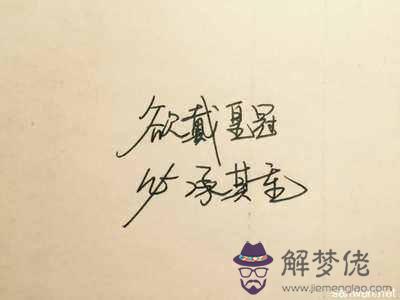 欲戴皇冠
必承其重
解梦佬
www.jiemenglao.com